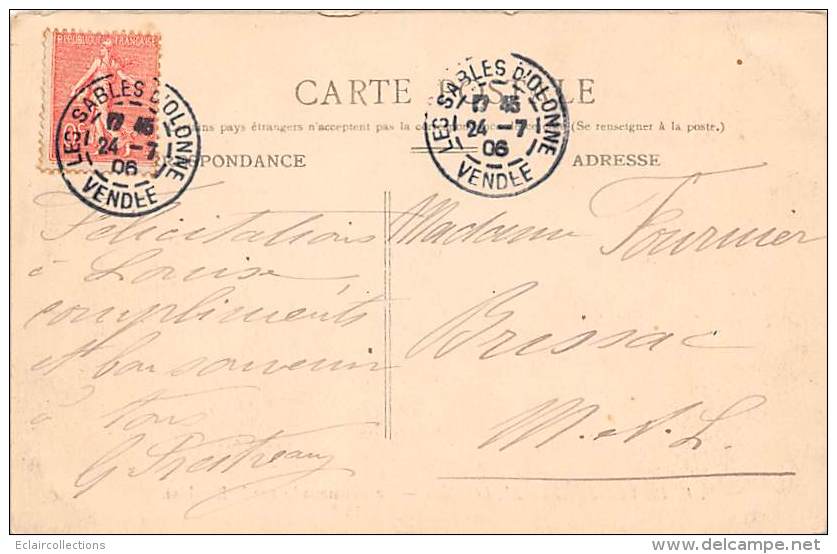 REPUBLIQUE FRANÇAISE
LES SABLES D'OLONNE
45
24 -7
06
VENDÉE
LES SABLES D'OLONNE
45
24 -7
06
VENDÉE
CARTE POSTALE
pays étrangers n'acceptent pas la (Se renseigner à la poste.)
RESPONDANCE
ADRESSE
Félicitations
à Louise
compliments
et bon souvenir
à tous
G.
Madame Fournier
Brissac
M.-et-L.
Eclaircollections
delcampe.net